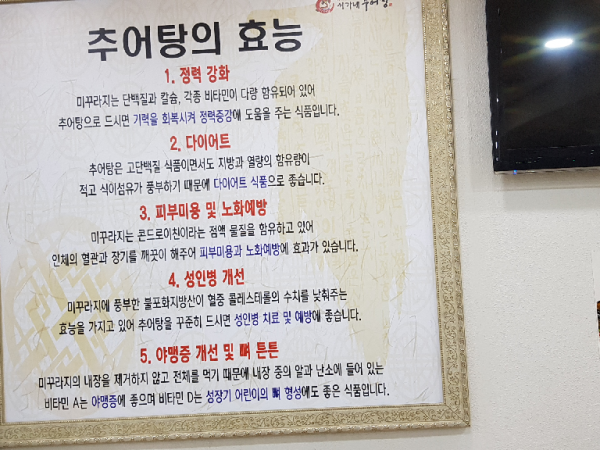 추어탕의 효능
1. 정력 강화
미꾸라지는 단백질과 칼슘, 각종 비타민이 다량 함유되어 있어
추어탕으로 드시면 기력을 회복시켜 정력증강에 도움을 주는 식품입니다.
2. 다이어트
추어탕은 고단백질 식품이면서도 지방과 열량의 함유량이
적고 식이섬유가 풍부하기 때문에 다이어트 식품으로 좋습니다.
3. 피부미용 및 노화예방
미꾸라지는 콘드로이친이라는 점액 물질을 함유하고 있어
인체의 혈관과 장기를 깨끗이 해주어 피부미용과 노화예방에 효과가 있습니다.
4. 성인병 개선
미꾸라지에 풍부한 불포화지방산이 혈중 콜레스테롤의 수치를 낮춰주는
효능을 가지고 있어 추어탕을 꾸준히 드시면 성인병 치료 및 예방에 좋습니다.
5. 야맹증 개선 및 뼈 튼튼
미꾸라지의 내장을 제거하지 않고 전체를 먹기 때문에 내장 중의 알과 난소에 들어 있는
비타민 A는 야맹증에 좋으며 비타민 D는 성장기 어린이의 뼈 형성에도 좋은 식품입니다.